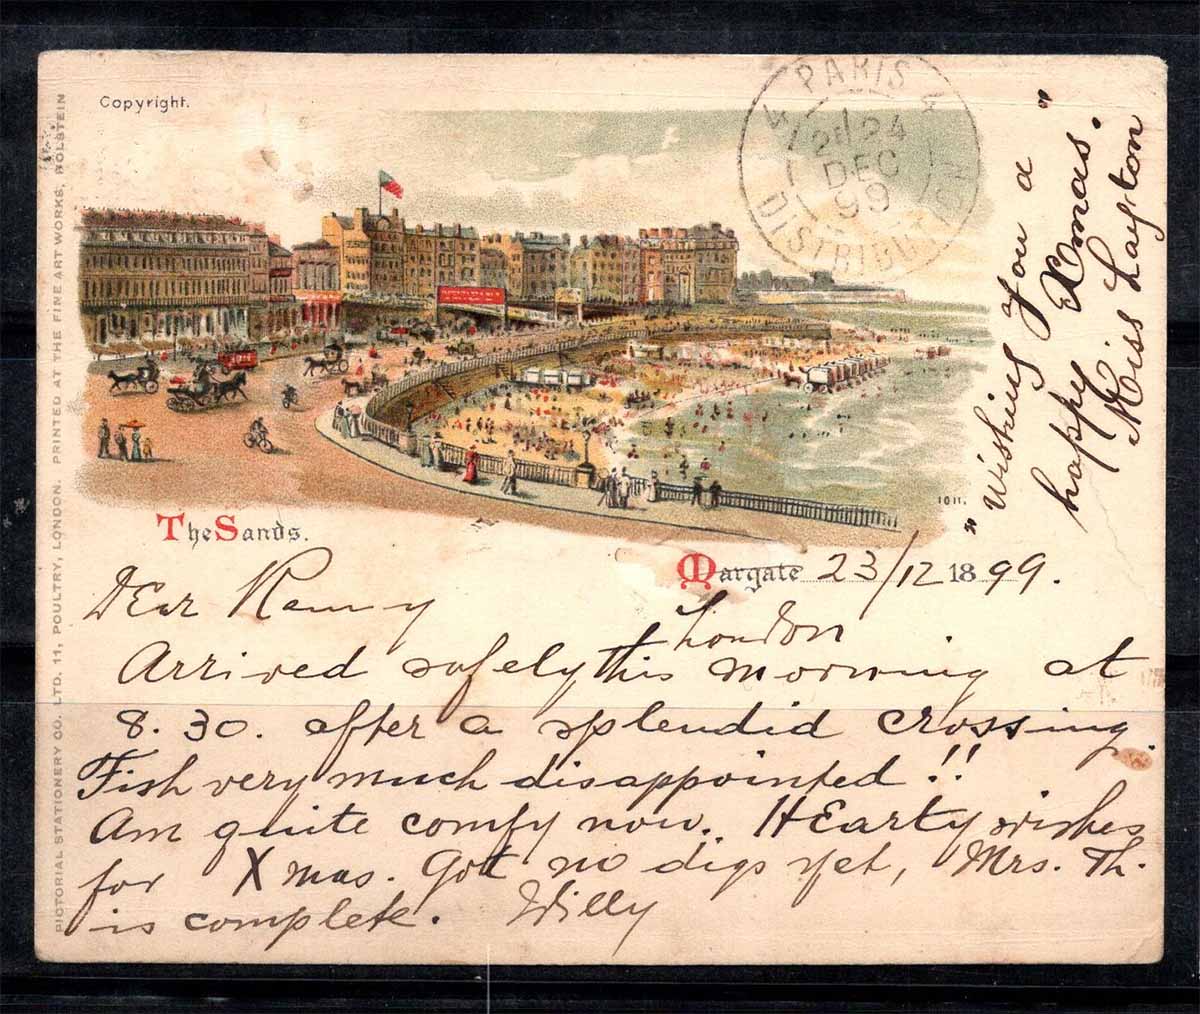 Copyright.
PARIS
24
DEC
99
DISTRIBUTION
"Wishing you a
happy Xmas."
Miss Layton
1011.
The Sands.
Margate 23/12 1899.
London
Dear
Arrived safely this morning at
8.30. after a splendid crossing
Fish very much disappointed!!
Am quite comfy now. HEarty wishes
for Xmas. Got no digs yet, Mrs. Th.
is complete. Willy
PICTORIAL STATIONERY CO. LTD. 11, POULTRY, LONDON. PRINTED AT THE FINE ART WORKS, HOLSTEIN